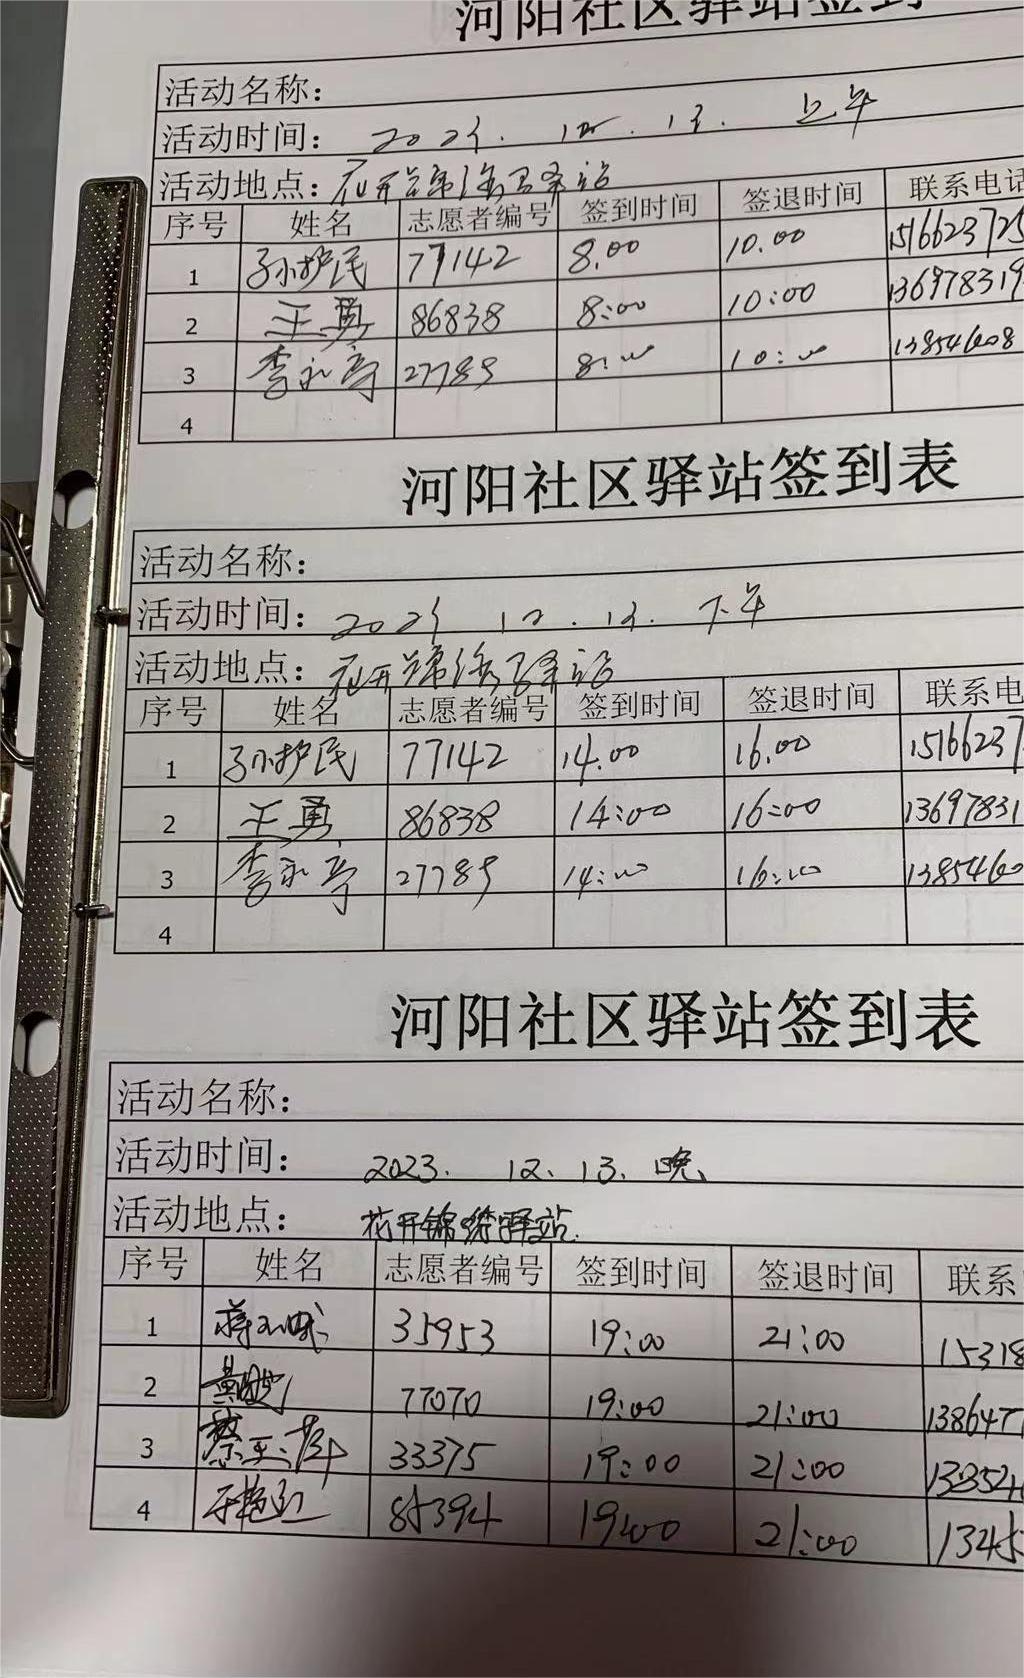 河阳社区驿站签到
活动名称：
活动时间： 2023. 12. 13. 上午
活动地点：花开锦绣驿站
序号 姓名 志愿者编号 签到时间 签退时间 联系电话
1 孙护民 77142 8.00 10.00 1516623725
2 王勇 86838 8:00 10:00 136978319
3 李永亭 27785 8:00 10:00 13854608
4
河阳社区驿站签到表
活动名称：
活动时间： 2023 12. 13. 下午
活动地点：花开锦绣驿站
序号 姓名 志愿者编号 签到时间 签退时间 联系电
1 孙护民 77142 14.00 16.00 15166237
2 王勇 86838 14:00 16:00 13697831
3 李永亭 27785 14:00 16:00 1385460
4
河阳社区驿站签到表
活动名称：
活动时间： 2023. 12. 13. 晚
活动地点： 花开锦绣驿站.
序号 姓名 志愿者编号 签到时间 签退时间 联系
1 35953 19:00 21:00 15318
2 77070 19:00 21:00 138647
3 33375 19:00 21:00 133524
4 85394 19:00 21:00 1345